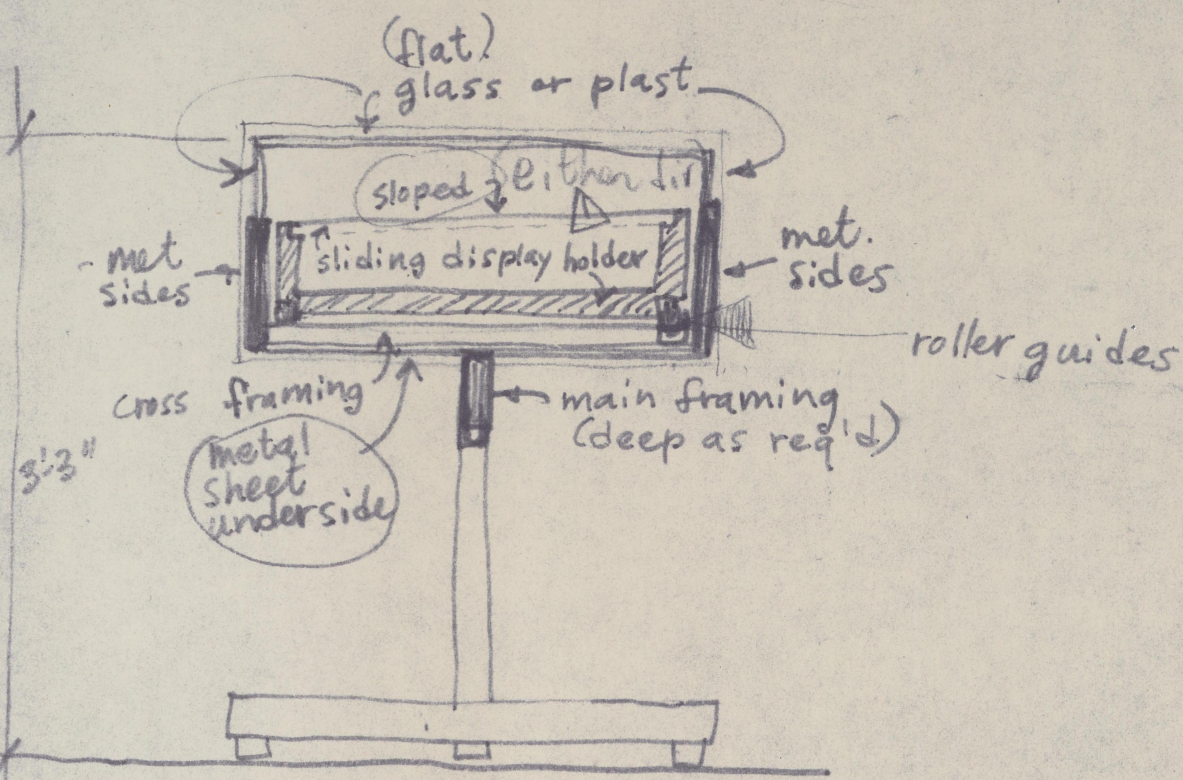 (flat)
glass or plast
sloped
either dir
sliding display holder
met
sides
met.
sides
roller guides
cross framing
main framing
(deep as req'd)
metal
sheet
underside
3'-3"